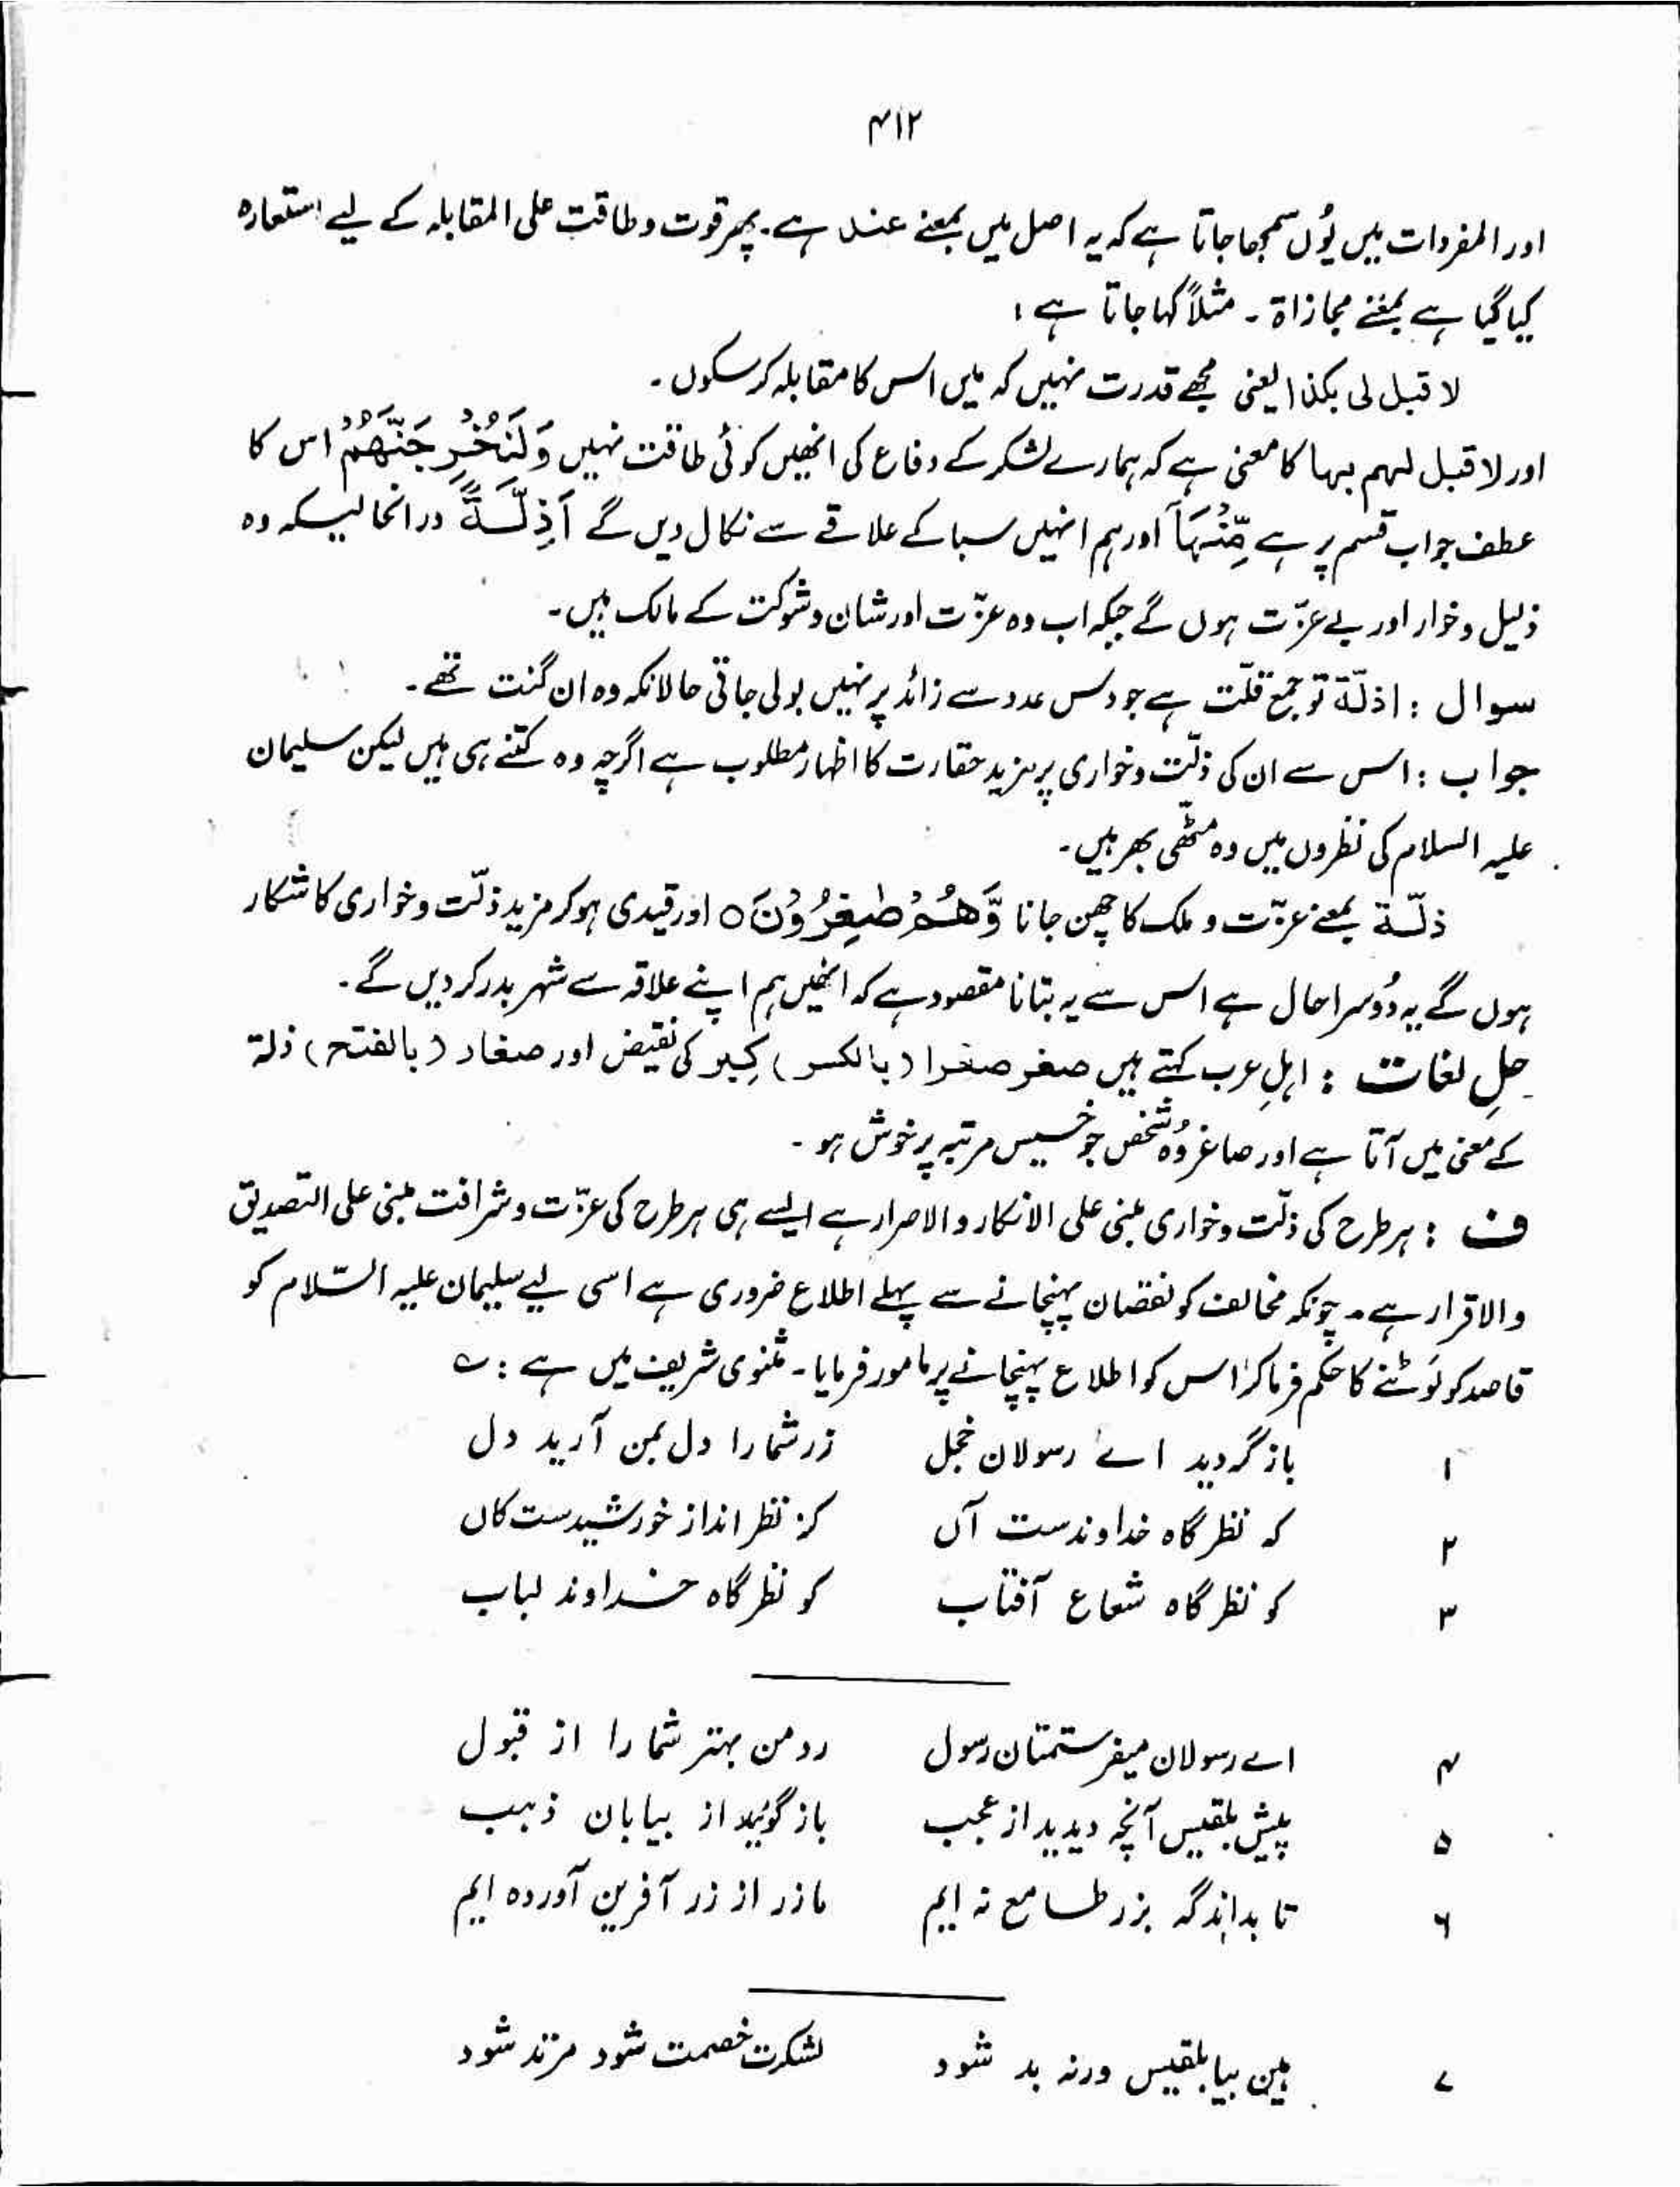 ۴۱۲
اور المفردات میں یُوں سمجھا جاتا ہے کہ یہ اصل میں بمعنے عند ہے۔ پھر قوت و طاقت علی المقابلہ کے لیے استعارہ
کیا گیا ہے بمعنے مجازاۃ ۔ مثلاً کہا جاتا ہے :
لا قبل لی بکذا یعنی مجھے قدرت نہیں کہ میں اس کا مقابلہ کر سکوں ۔
اور لا قبل لہم بہا کا معنی ہے کہ ہمارے لشکر کے دفاع کی انھیں کوئی طاقت نہیں وَلَنُخْرِجَنَّهُمْ اس کا
عطف جواب قسم پر ہے مِّنْهَآ اور ہم انہیں سبا کے علاقے سے نکال دیں گے اَذِلَّةً درانحالیکہ وہ
ذلیل و خوار اور بے عزّت ہوں گے جبکہ اب وہ عزّت اور شان و شوکت کے مالک ہیں ۔
سوال : اذلّۃ تو جمع قلّت ہے جو دس عدد سے زائد پر نہیں بولی جاتی حالانکہ وہ ان گنت تھے ۔
جواب : اس سے ان کی ذلّت و خواری پر مزید حقارت کا اظہار مطلوب ہے اگرچہ وہ کتنے ہی ہیں لیکن سلیمان
علیہ السلام کی نظروں میں وہ مٹھّی بھر ہیں ۔
ذلّۃ بمعنے عزّت و ملک کا چھن جانا وَّهُمْ صٰغِرُوْنَ ○ اور قیدی ہو کر مزید ذلّت و خواری کا شکار
ہوں گے یہ دُوسرا حال ہے اس سے یہ بتانا مقصود ہے کہ انھیں ہم اپنے علاقہ سے شہر بدر کر دیں گے ۔
حلِ لغات : اہلِ عرب کہتے ہیں صغر صغرا (بالکسر) کِبر کی نقیض اور صغار (بالفتح) ذلۃ
کے معنی میں آتا ہے اور صاغر وُہ شخص جو خسیس مرتبہ پر خوش ہو ۔
ف : ہر طرح کی ذلّت و خواری مبنی علی الانکار والاصرار ہے ایسے ہی ہر طرح کی عزّت و شرافت مبنی علی التصدیق
والاقرار ہے ۔ چونکہ مخالف کو نقصان پہنچانے سے پہلے اطلاع ضروری ہے اسی لیے سلیمان علیہ السّلام کو
قاصد کو لَوٹنے کا حکم فرما کر اس کو اطلاع پہنچانے پر مامور فرمایا ۔ مثنوی شریف میں ہے : ؎
۱ باز گردید اے رسولان خجل زر شما را دل بمن آرید دل
۲ کہ نظر گاہ خداوندست آں کز نظر انداز خورشیدست کاں
۳ کو نظر گاہ شعاع آفتاب کو نظر گاہ خداوند لباب
۴ اے رسولان میفرستمتان رسول رد من بہتر شما را از قبول
۵ پیش بلقیس آنچہ دیدید از عجب باز گوئید از بیابان ذہب
۶ تا بداند گہ بزر طامع نہ ایم ما زر از زر آفرین آوردہ ایم
۷ ہین بیا بلقیس ورنہ بد شود لشکرت خصمت شود مرتد شود